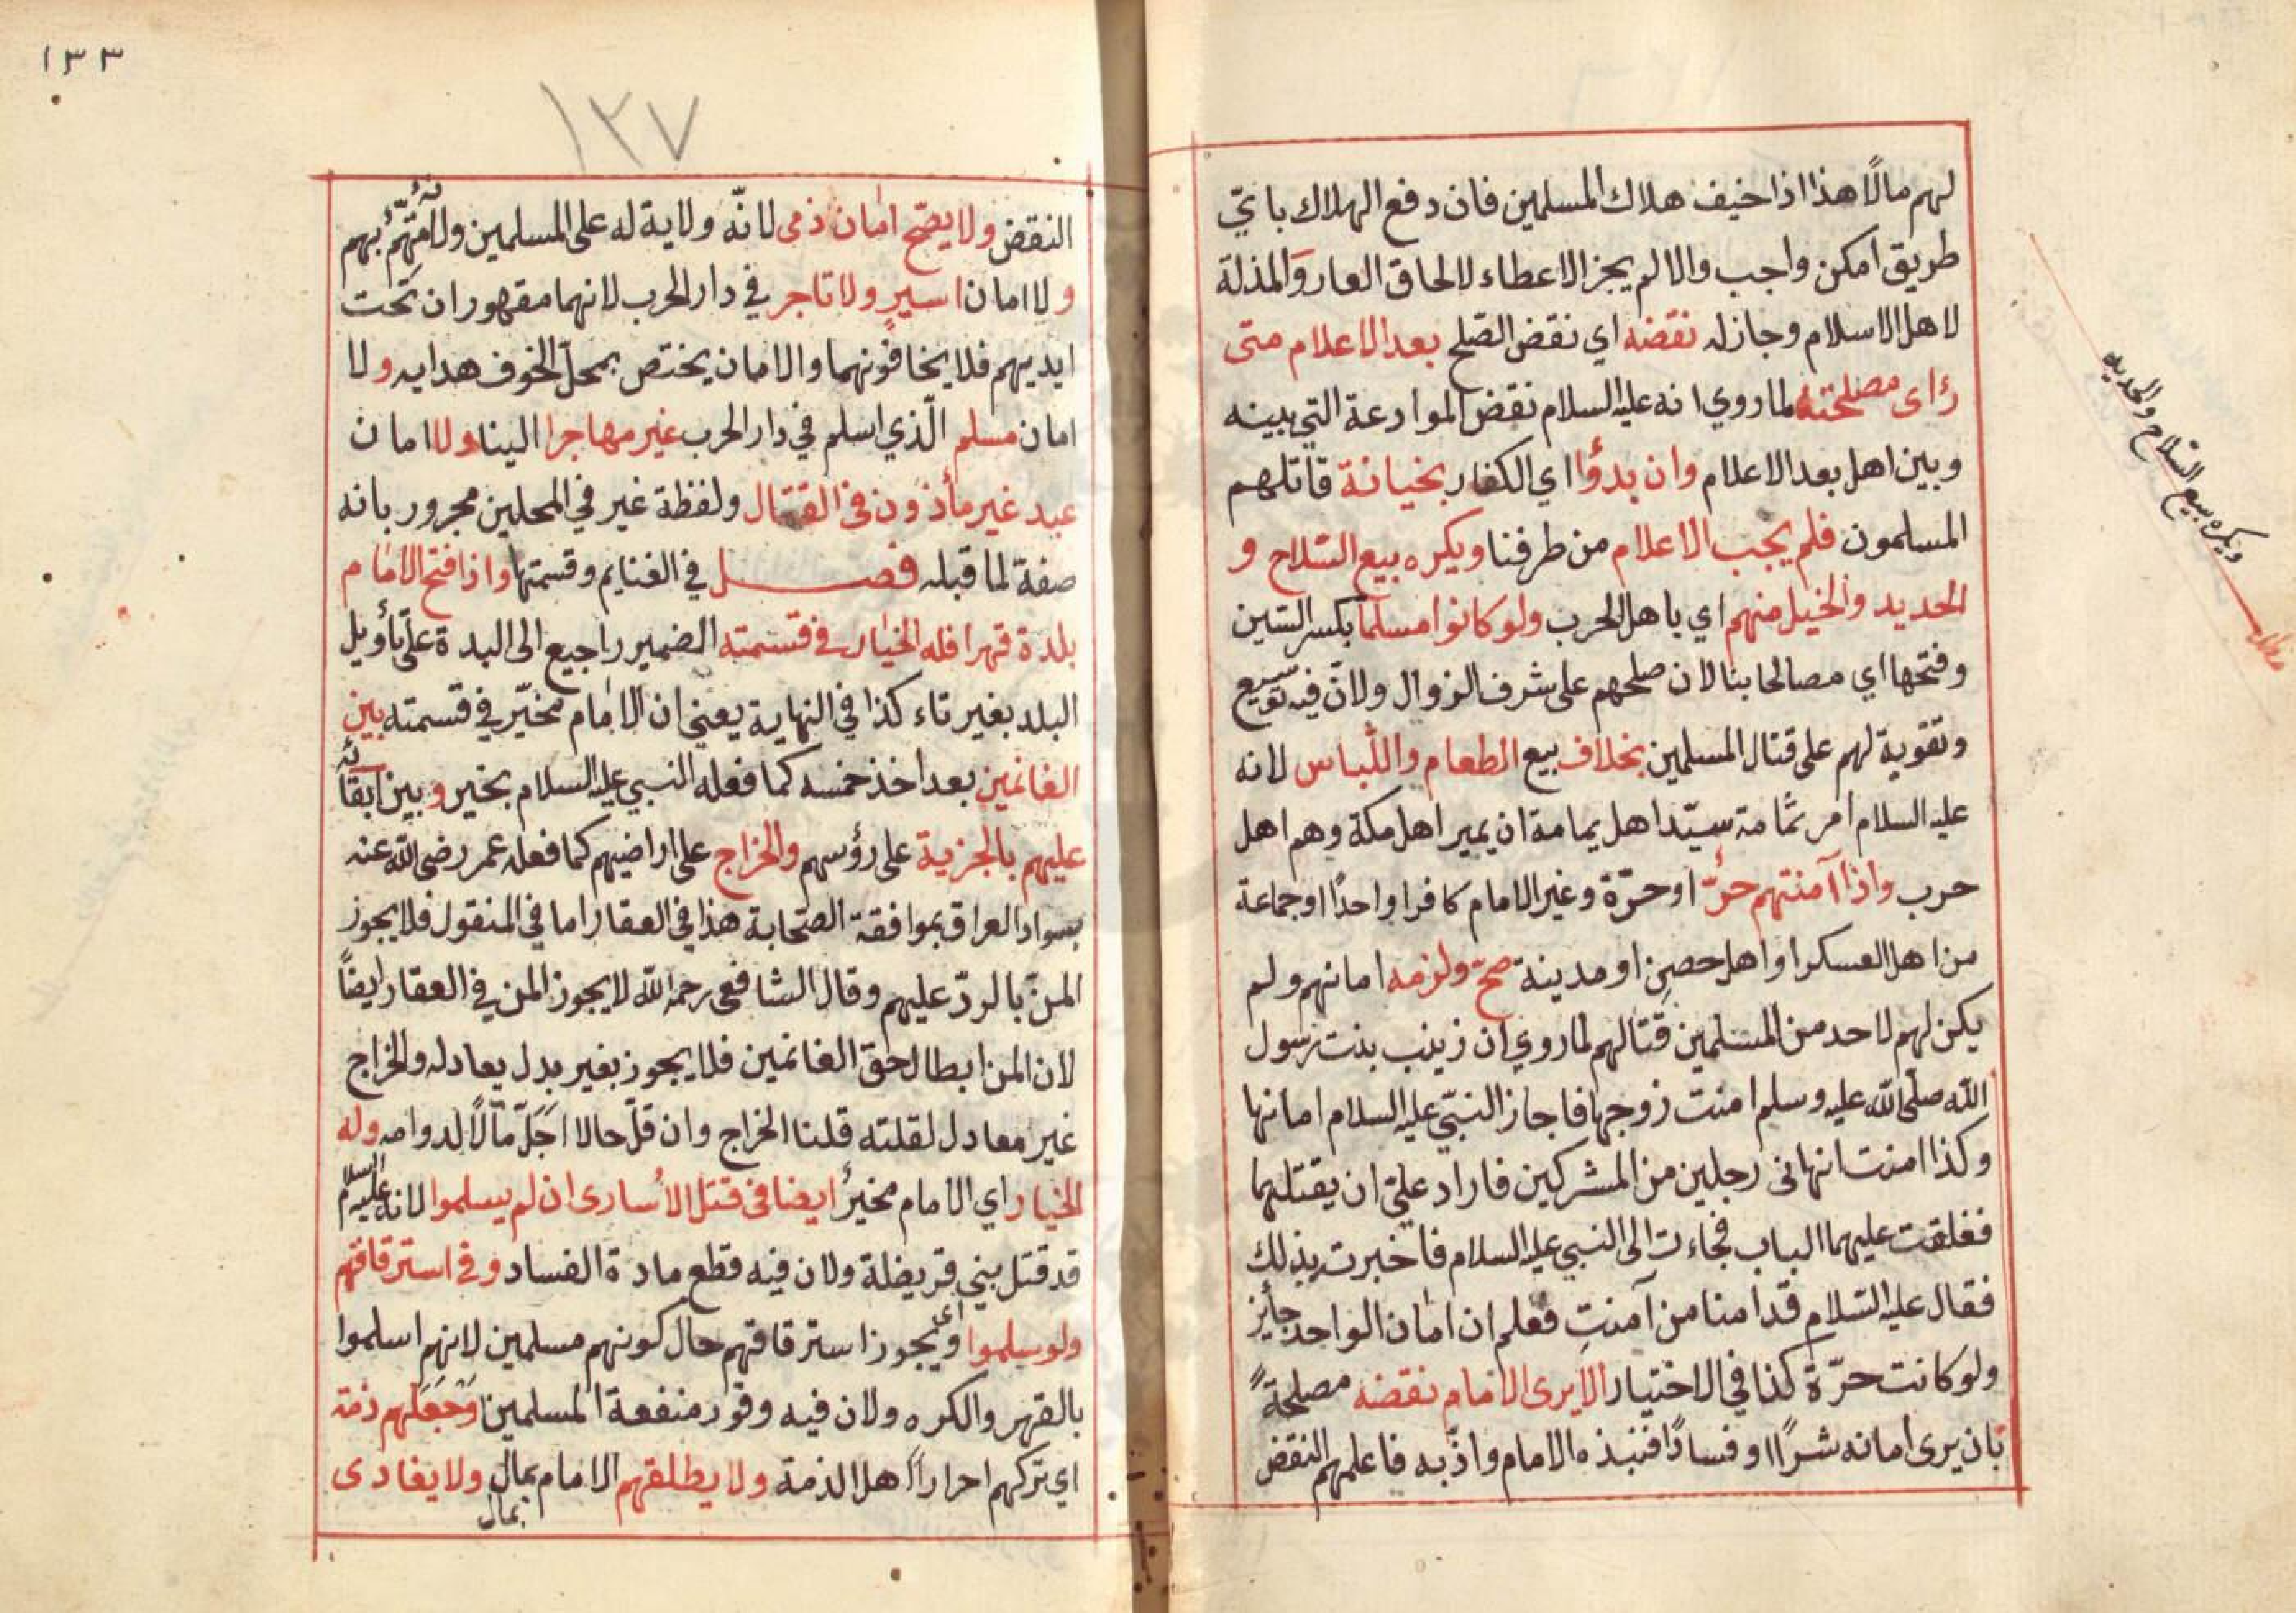 لهم مالًا هذا اذا خيف هلاك المسلمين فان دفع الهلاك باتيّ
طريق امكن واجب والا لم يجز الاعطاء لالحاق العار وَالمذلة
لاهل الاسلام وجاز له نقضه اي نقض الصّلح بعد الاعلام متى
رٔاى مصلحته لما روي انه عليه السلام نقض الموادعة التي بينه
وبين اهل بعد الاعلام وان بدؤا اي الكفار بخيانة قاتلهم
المسلمون فلم يجب الاعلام من طرفنا ويكره بيع السّلاح و
الحديد والخيل منهم اي باهل الحرب ولو كانوا مسلما بكسر السّين
وفتحها اي مصالحا بنا لان صلحهم على شرف الزوال ولانّ فيه توسيع
وتقوية لهم على قتال المسلمين بخلاف بيع الطعام واللّباس لانه
عليه السلام امر ثمّامة سيّد اهل يمامة ان يمير اهل مكة وهم اهل
حرب واذا آمنتهم حرّ او حرّة وغير الامام كافرا واحدًا او جماعة
من اهل العسكر او اهل حصن او مدينة صحّ ولزمه امانهم ولم
يكن لهم لاحد من المسلمين قتالهم لما روي ان زينب بنت رسول
الله صلّى الله عليه وسلم امنت زوجها فاجاز النبّي عليه السلام امانها
وكذا امنت انهانى رجلين من المشركين فاراد عليّ ان يقتلهما
فغلقت عليهما الباب فجاءت الى النبي عليه السلام فاخبرت بذلك
فقال عليه السّلام قد امنا من آمنتِ فعلم ان امان الواحد جأيز
ولو كانت حرّة كذا في الاختيار الا يرى الامام نقضه مصلحةً
بان يرى امانه شرًا او فسادًا فنبذه الامام واذّبه فاعلمهم النقض
ويكره بيع السّلاح والحديد
١٣٣
١٢٧
النقض ولا يصّح امان ذمى لانّه ولاية له على المسلمين ولانّه مُتّهَمٌ بهم
ولا امان اسيرٍ ولا تاجر في دار الحرب لانهما مقهوران تحت
ايديهم فلا يخافونهما والامان يختص بمحلّ الخوف هدايه ولا
امان مسلم الّذي اسلم في دار الحرب غير مهاجرا الينا ولا امان
عبد غير مأذون فى القتال ولفظة غير في المحلين مجرور بانه
صفة لما قبله فصل في الغنايم وقسمتها واذا فتح الامام
بلدة قهرا فله الخيار فى قسمته الضمير راجيع الى البدة على تأويل
البلد بغير تاء كذا في النهاية يعني ان الامام مخيّر في قسمته بين
الغانمين بعد اخذ خمسه كما فعله النبي عليه السلام بخير وبين ابقائه
عليهم بالجزية على رؤسهم والخراج على اراضيهم كما فعله عمر رضى الله عنه
بسواد العراق بموافقة الصّحابة هذا في العقار اما في المنقول فلا يجوز
المنّ بالردّ عليهم وقال الشافعى رحمه الله لا يجوز المن في العقار ايضًا
لان المن ابطال حق الغانمين فلا يجوز بغير بدل يعادله والخراج
غير معادل لقلته قلنا الخراج وان قلّ حالا اجَلّ مآلًا لدوامه وله
الخيار اي الامام مخيرٌ ايضا فى قتل الأسارى ان لم يسلموا لانه عليه السلام
قد قتل بني قريضلة ولان فيه قطع مادة الفساد وفى استرقاقهم
ولو سلموا اى ويجوز استرقاقهم حال كونهم مسلمين لانهم اسلموا
بالقهر والكره ولان فيه وقور منفعة المسلمين وَجَعَلهم ذمّة
اي تركهم احرارًا كاهل الذمة ولا يطلقهم الامام بمال ولا يفادى
بمال